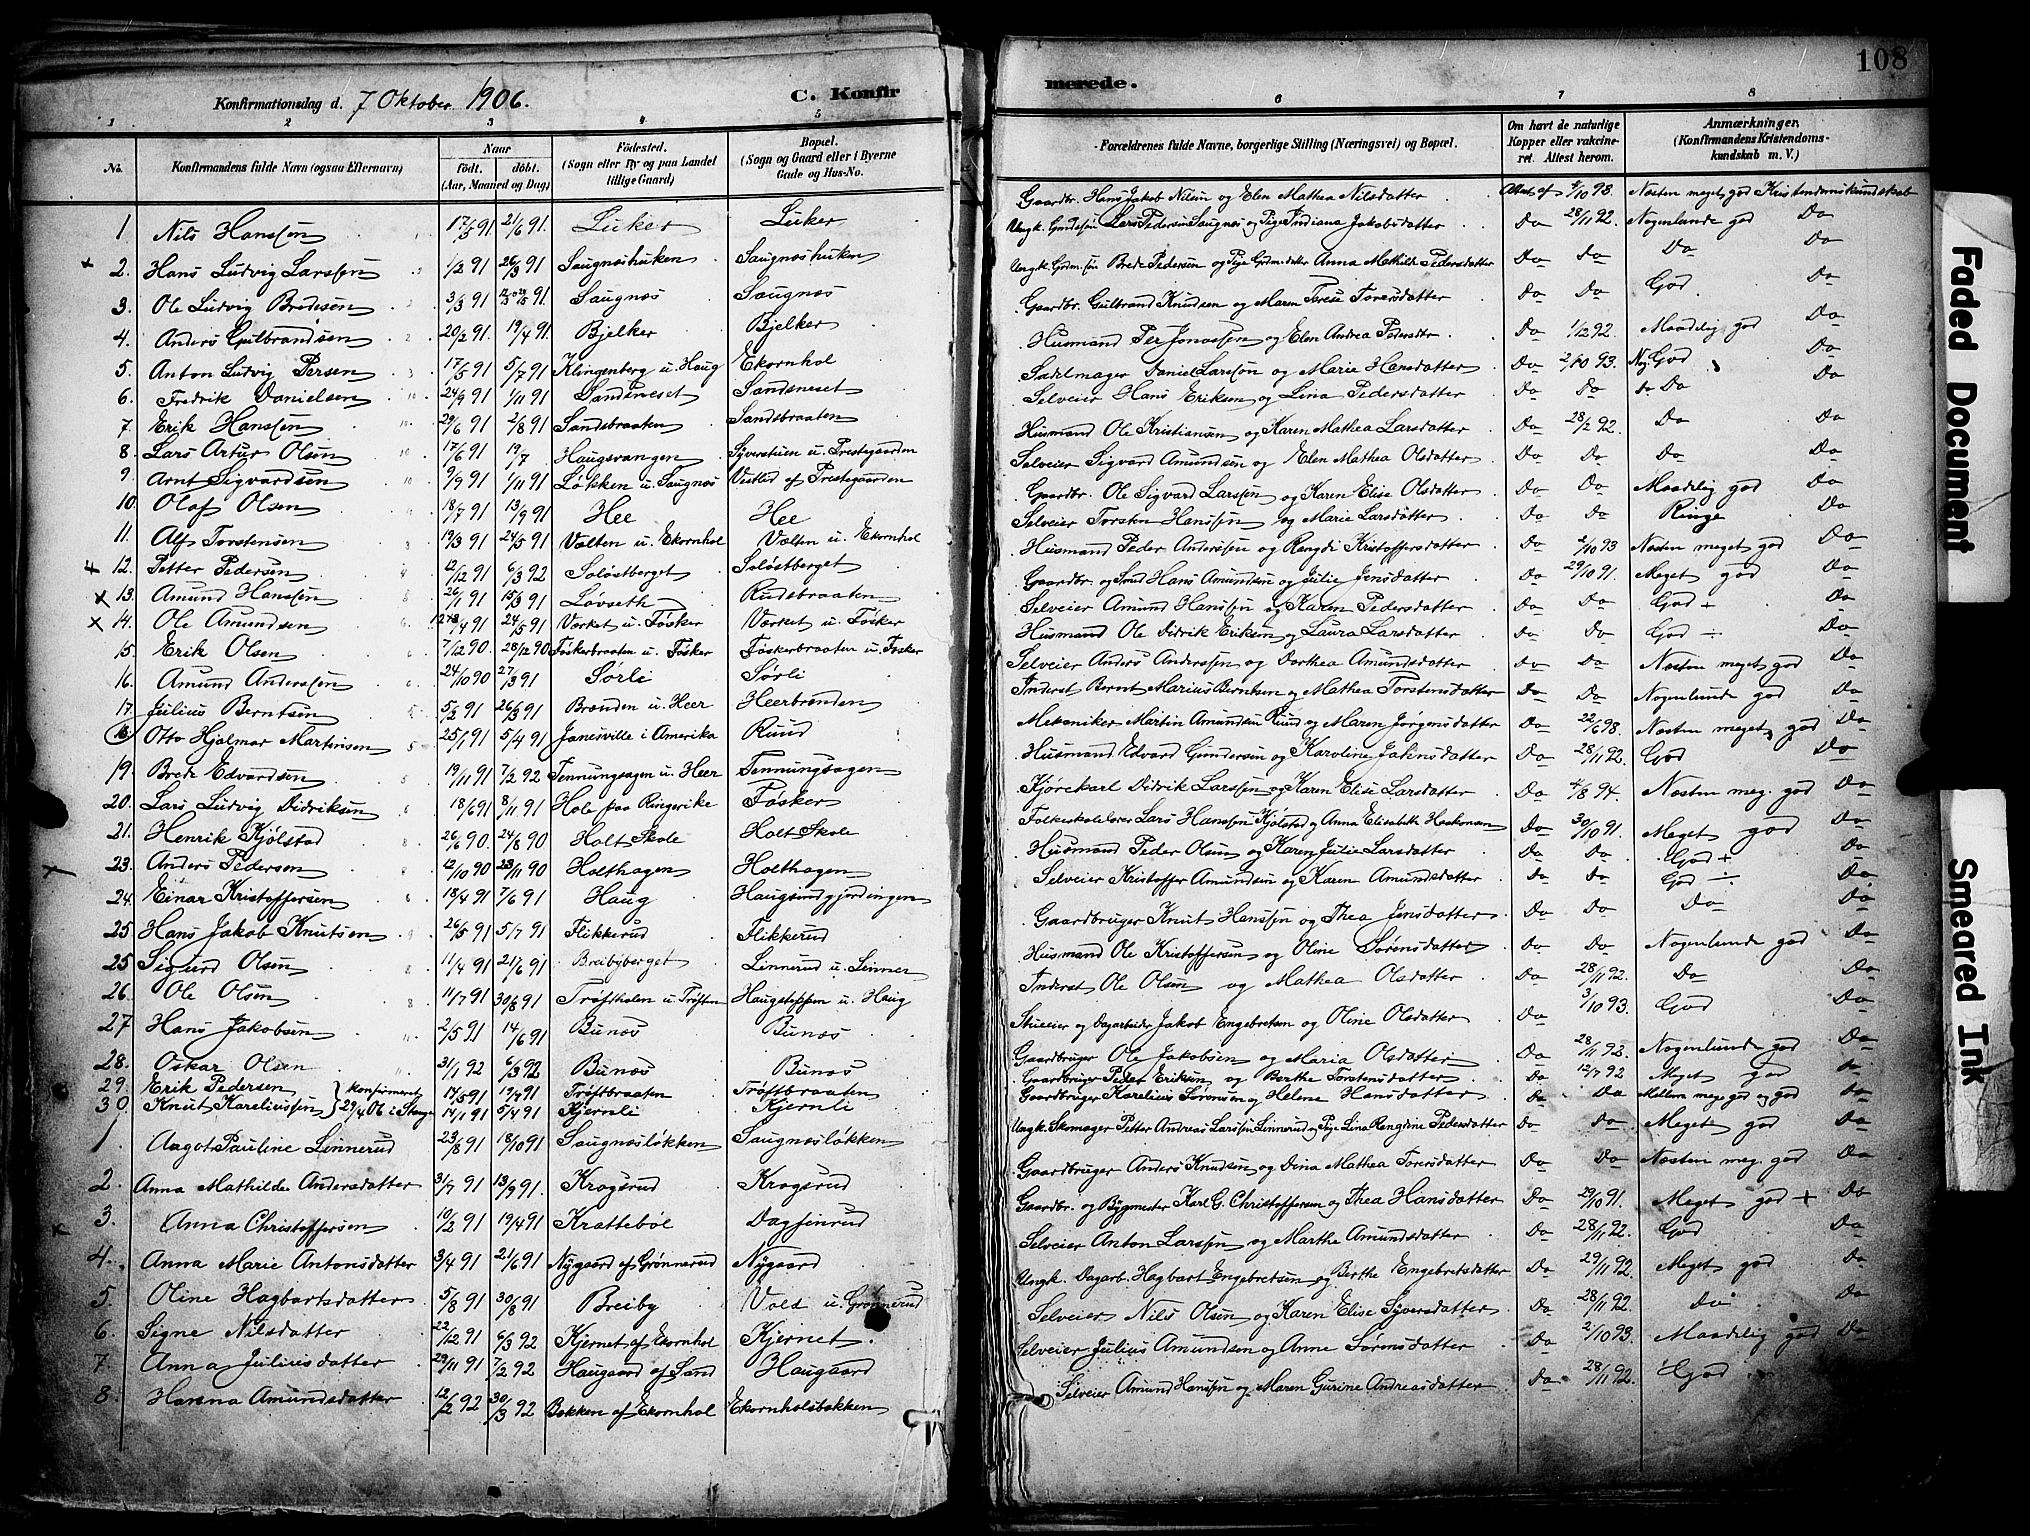 108
Konfirmationsdag d. 7 Oktober 1906.
C. Konfirmerede.
1 2 3 4 5 6 7 8
No. Konfirmandens fulde Navn (ogsaa Efternavn)
Naar født. døbt. (Aar, Maaned og Dag)
Fødested. (Sogn eller By og paa Landet tillige Gaard)
Bopæl. (Sogn og Gaard eller i Byerne Gade og Hus-No.
Forældrenes fulde Navne, borgerlige Stilling (Næringsvei) og Bopæl.
Om havt de naturlige Kopper eller vakcineret. Attest herom.
Anmærkninger. (Konfirmandens Kristendomskundskab m. V.)
1. Nils Hanssøn 17/5 91 21/6 91. Luker Luker Gaardbr. Hans Jakob Nilsen og Elen Mathea Nilsdatter Attest af 98. Næsten meget god Kristendomskundskab
2. Hans Ludvig Larssøn 1/2 91 26/3 91 Saugnæshuken Saugnæshuken Lars Pedersen Saugnæs og Pige Indiana Jakobsdatter Do 28/11 92. Nogenlunde god Do
3. Ole Ludvig Bredesen 3/3 91 91. Saugnæs Saugnæs Brede Pedersen og Pige Anna Mathilde Pedersdatter Do Do Do Do
4. Anders Gulbrandsen 20/2 91 19/4 91. Bjelker Bjelker Gaardbr. Gulbrand Knudsen og Maren Torsdatter Do Do God Do
5. Anton Ludvig Persen 17/5 91 5/7 91 Klingenberg u. Haug Ekornhol Husmand Per Jonassen og Elen Andrea Pedersdtr Do 1/12 92. Maadelig god Do
6. Fredrik Danielsen 24/9 91 1/11 91 Sandsneset Sandsneset Sadelmager Daniel Larssøn og Marie Hansdatter Do 2/10 93. God Do
7. Erik Hanssøn 29/6 91 2/8 91 Sandsbraaten Sandsbraaten Selveier Hans Eriksen og Lina Pedersdatter Do Do Do Do
8. Lars Artur Olsen 17/6 91 19/7 Haugsvangen Syverstuen u. Prestegaarden Husmand Ole Kristiansen og Karen Mathea Larsdatter Do 28/2 92. Do Do
9. Arnt Sigvardsen 9/9 91 1/11 91 Løkken u. Saugnæs Vestlid af Prestegaarden Selveier Sigvard Amundsen og Elen Mathea Olsdatter Do Do Do Do
10. Olaf Olsen 18/7 91 13/9 91 Hee Hee Gaardbr. Ole Sigvard Larssøn og Karen Elise Olsdatter Do Do Maadelig god Do
11. Alf Torstensen 19/3 91 24/5 91 Vælten u. Ekornhol Vælten u. Ekornhol Selveier Torsten Hanssøn og Marie Larsdatter Do Do Ringe Do
12. Petter Pedersen 12/12 91 6/3 92 Soløstberget Soløstberget Husmand Peder Anderssøn og Rangdi Kristoffersdatter Do 2/10 93 Næsten meget god Do
13. Amund Hanssøn 26/1 91 15/3 91 Løvseth Rudsbraaten Gaardbr. og Smed Hans Amundsen og Julie Jensdatter Do 29/10 91. Meget god Do
14. Ole Amundsen /4 91 24/5 91 Værket u. Føsker Værket u. Føsker Selveier Amund Hanssøn og Karen Pedersdatter Do Do God + Do
15. Erik Olsen 7/12 90. 28/12 90 Føskerbraaten u. Føsker Føskerbraaten u. Føsker Husmand Ole Didrik Eriksen og Laura Larsdatter Do Do God ÷ Do
16. Amund Anderssøn 24/10 90 27/3 91 Sørli Sørli Selveier Anders Anderssen og Dorthea Amundsdatter Do Do Næsten meget god Do
17. Julius Berntsen 5/2 91 26/3 91 Brænden u. Heer Heerbrænden Inderst Bernt Marius Berntsen og Mathea Torstensdatter Do Do Nogenlunde god Do
18. Otto Hjalmar Martinsen 25/1 91 5/4 91 Janesville i Amerika Ruud Mekaniker Martin Amundsen Ruud og Maren Jørgensdatter Do 22/6 98. Næsten meget god Do
19. Brede Edvardsen 19/11 91 7/2 92 Tennungsagen u. Heer Tennungsagen Husmand Edvard Gundersen og Karoline Do 28/11 92. God Do
20. Lars Ludvig Didriksen 18/6 91 8/11 91 Hole paa Ringerike Føsker Kjørekarl Didrik Larssen og Karen Elise Larsdatter Do 4/8 94. Næsten meg. god Do
21. Henrik Kjølstad 26/6 90 24/8 90 Holt Skole Holt Skole Folkeskolelærer Lars Hanssøn Kjølstad og Anna Elisabeth Do 30/10 91. Meget god Do
23. Anders Pedersen 12/10 90 23/11 90 Holthagen Holthagen Husmand Peder Olsen og Karen Julie Larsdatter Do Do God + Do
24. Einar Kristoffersen 18/4 91 7/6 91 Haug Haugsrudgjordingen Selveier Kristoffer Amundsen og Karen Amundsdatter Do Do God ÷ Do
25 Hans Jakob Knutsen 26/5 91 5/7 91 Flikkerud Flikkerud Gaardbruger Knut Hanssøn og Thea Jensdatter Do Do Do Do
25 Sigurd Olsen 11/4 91 21/6 91 Breibyberget Linnerud u. Linner Husmand Ole Kristoffersen og Oline Sørensdatter Do Do Nogenlunde god Do
26. Ole Olsen 11/7 91 30/8 91 Trøftholen u. Trøften Haugsteppen u. Haug Inderst Ole Olsen og Mathea Olsdatter Do 28/11 92. Do Do
27 Hans Jakobsen 2/5 91 14/6 91 Bunæs Bunæs og Dagarbeider Jakob Engebretsen og Oline Olsdatter Do 3/10 93. God Do
28. Oskar Olsen 31/1 92 6/3 92 Bunæs Bunæs Gaardbruger Ole Jakobsen og Maria Olsdatter Do 28/11 92. Nogenlunde god Do
29. Erik Pedersen 17/5 91 19/7 91 Trøftbraaten Trøftbraaten Gaardbruger Peder Eriksen og Berthe Torstensdatter Do 12/7 92 Meget god Do
30. Knut Kareliussen } konfirmeret 29/4 06 i Stange 14/1 91 5/4 91 Kjernli Kjernli Gaardbruger Karelius Sørensen og Helene Hansdatter Do Do Mellem meget god og god Do
1. Aagot Pauline Linnerud 23/8 91 18/10 91 Saugnæsløkken Saugnæsløkken Ungk. Skomager Petter Andreas Larssen Linnerud og Pige Lina Rangdine Pedersdatter Do Do Meget god Do
2. Anna Mathilde Andersdatter 31/7 91 13/9 91. Krogsrud Krogsrud Gaardbruger Anders Knudsen og Dina Mathea Torersdatter Do Do Næsten meg. god Do
3. Anna Christoffersen 10/2 91 19/4 91 Krattebøl Dagfinrud Gaardbr. og Bygmester Karl G. Christoffersen og Thea Hansdatter Do 29/10 91. Meget god + Do
4. Anna Marie Antonsdatter 3/4 91 21/6 91 Nygaard af Grønnerud Nygaard Selveier Anton Larssen og Marthe Amundsdatter Do 28/11 92. God Do
5. Oline Hagbartsdatter 5/8 91 30/8 91 Breiby Vold u. Grønnerud Ungk. Dagarb. Hagbart Engebretsen og Berthe Engebretsdatter Do 29/11 92. Meget god Do
6. Signe Nilsdatter 22/12 91 6/3 92 Kjernet af Ekornhol Kjernet. Selveier Nils Olsen og Karen Elise Syversdatter Do 28/11 92. Do Do
7. Anna Juliusdatter 29/11 91 7/2 92 Haugaard af Sand Haugaard Selveier Julius Amundsen og Anne Sørensdatter Do 2/10 93. Maadelig god Do
8. Hanna Amundsdatter 12/2 92 30/3 92 Bakken af Ekornhol Ekornholsbakken Selveier Amund Hanssøn og Maren Gurine Andreasdatter Do 28/11 92. God
Faded Document
Smeared Ink